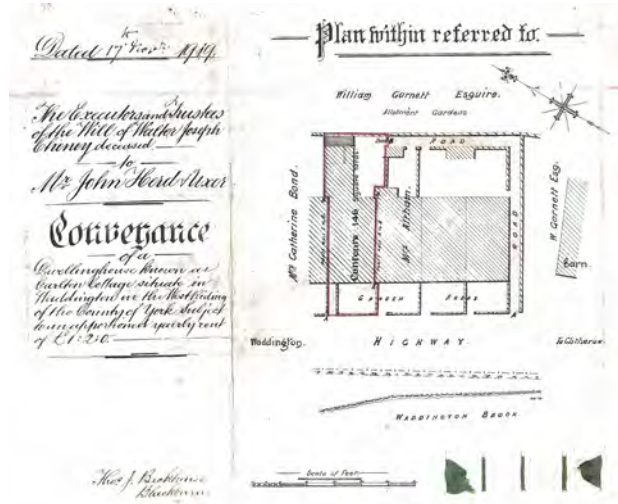 Dated 17th Novr. 1919.
The Executors and Trustees
of the Will of Walter Joseph
Cheney deceased
to
Mr John Herd & Uxor
Conveyance
of a
Dwellinghouse known as
Carlton Cottage situate in
Waddington in the West Riding
of the County of York subject
to an apportioned yearly rent
of £1:2:0.
Thos J. Backhouse
Blackburn.
Plan within referred to.
William Garnett Esquire.
Allotment Gardens
ROAD
Mrs Catherine Bond.
Contents 146 square yards
Mrs
ROAD
W. Garnett Esq.
Barn.
GARDEN AREAS
A
A
Waddington.
HIGHWAY
To Clitheroe.
WADDINGTON BROOK
Scale of Feet